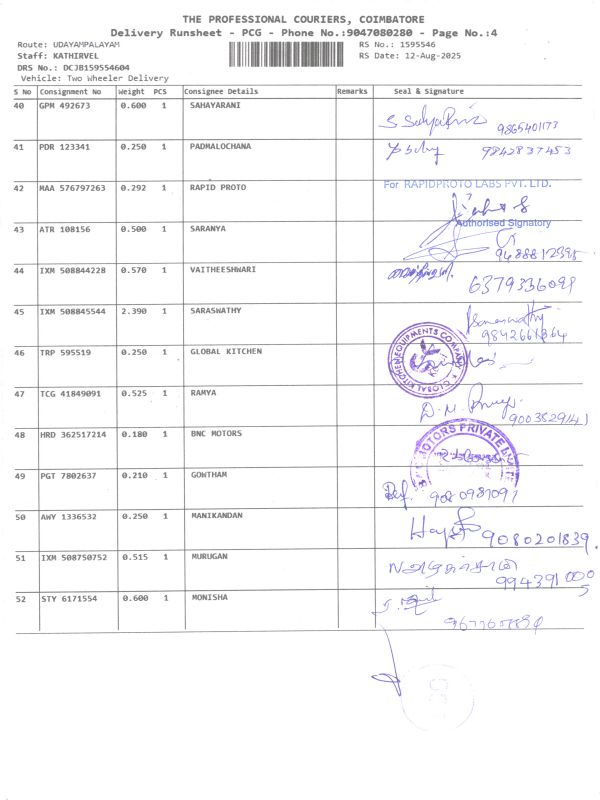 THE PROFESSIONAL COURIERS, COIMBATORE
Delivery Runsheet - PCG - Phone No.:9047080280 - Page No.:4
Route: UDAYAMPALAYAM RS No.: 1595546
Staff: KATHIRVEL RS Date: 12-Aug-2025
DRS No.: DCJB159554604
Vehicle: Two Wheeler Delivery
S No Consignment No Weight PCS Consignee Details Remarks Seal & Signature
40 GPM 492673 0.600 1 SAHAYARANI
9865401173
41 PDR 123341 0.250 1 PADMALOCHANA
9842837453
42 MAA 576797263 0.292 1 RAPID PROTO For RAPIDPROTO LABS PVT. LTD.
Authorised Signatory
43 ATR 108156 0.500 1 SARANYA
44 IXM 508844228 0.570 1 VAITHEESHWARI
6379336098
45 IXM 508845544 2.390 1 SARASWATHY
Saraswathy
46 TRP 595519 0.250 1 GLOBAL KITCHEN
GLOBAL KITCHEN EQUIPMENTS COMPANY
47 TCG 41849091 0.525 1 RAMYA
9003529141
48 HRD 362517214 0.180 1 BNC MOTORS
MOTORS PRIVATE
49 PGT 7802637 0.210 1 GOWTHAM
9080987097
50 AWY 1336532 0.250 1 MANIKANDAN
9080201839.
51 IXM 508750752 0.515 1 MURUGAN
994391000
5
52 STY 6171554 0.600 1 MONISHA